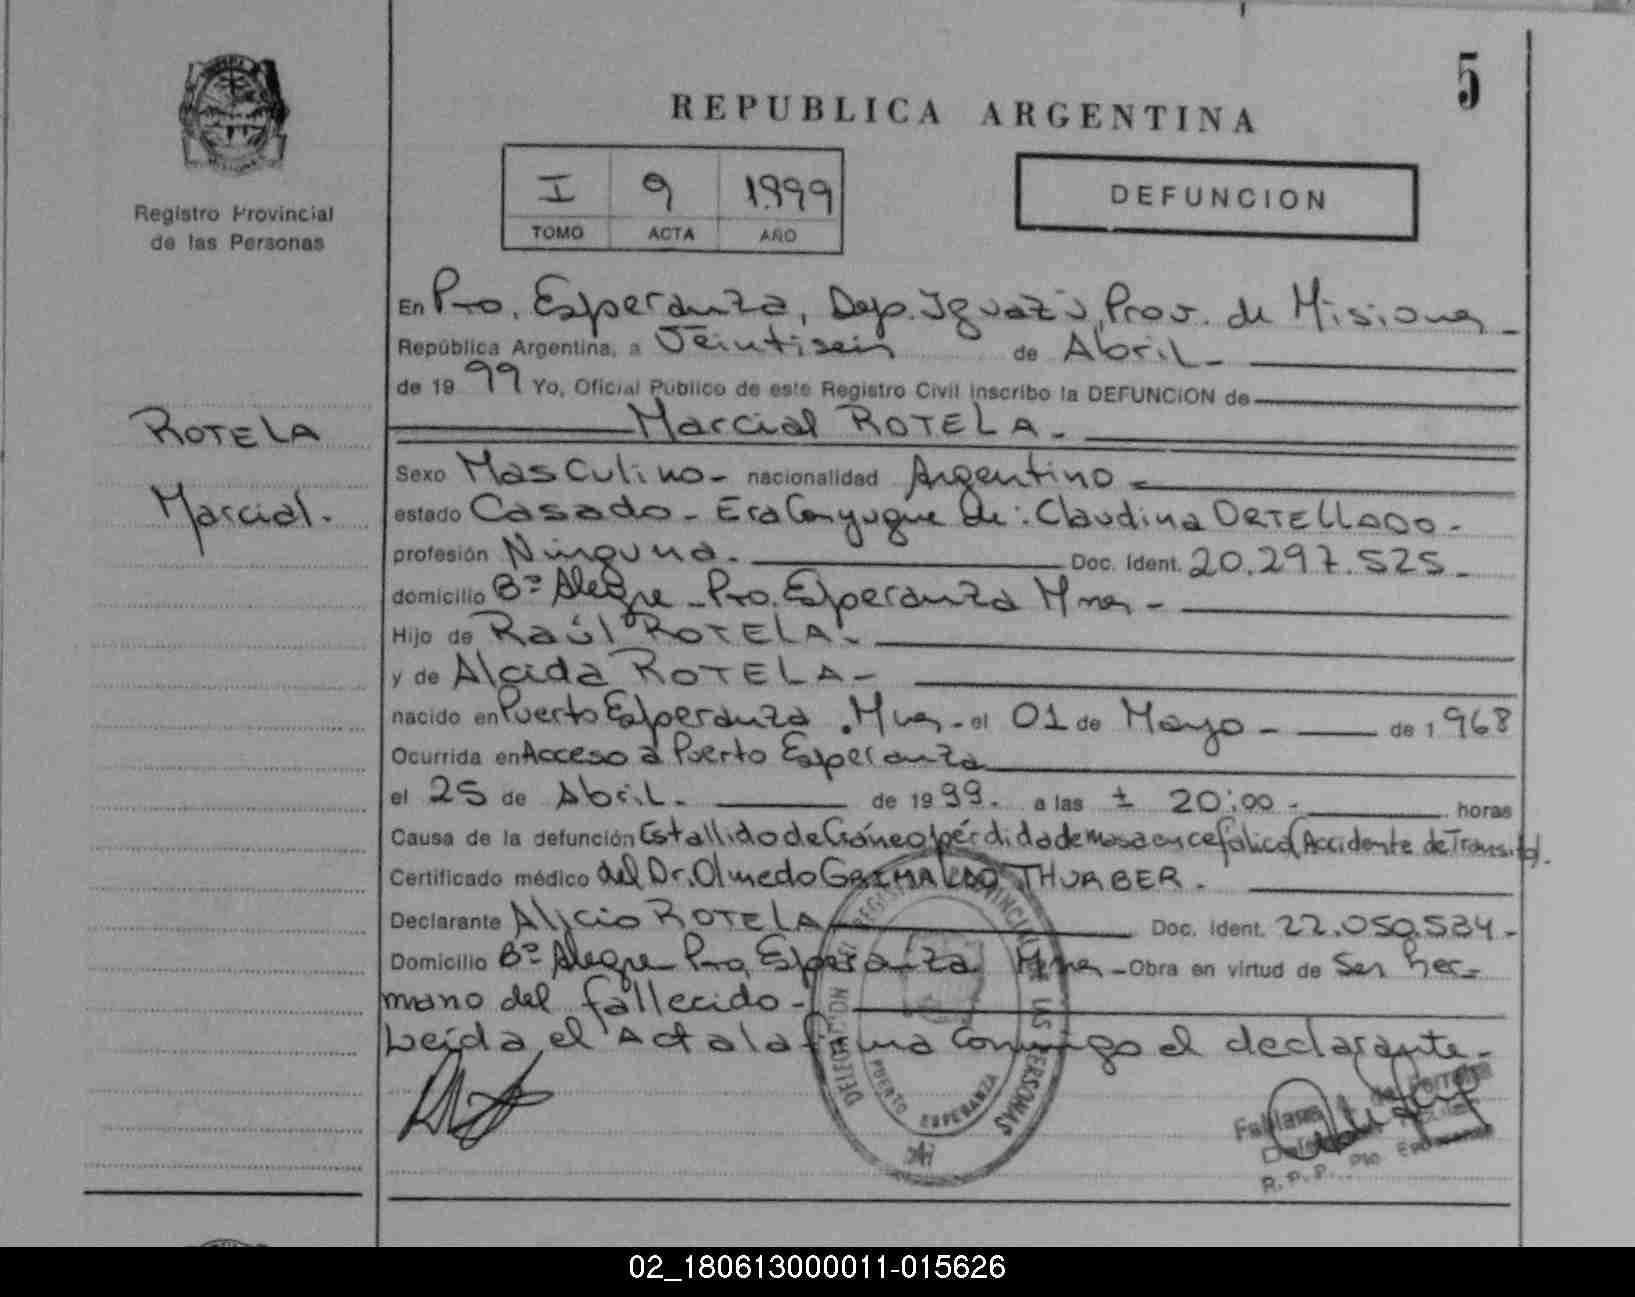 5
REPUBLICA ARGENTINA
Registro Provincial
de las Personas
I 9 1999
TOMO ACTA AÑO
DEFUNCION
ROTELA
Marcial.
En Pto. Esperanza, Dep. Iguazú, Prov. de Misiones
República Argentina, a Veintiseis de Abril
de 1999 Yo, Oficial Público de este Registro Civil inscribo la DEFUNCION de
Marcial ROTELA.
Sexo Masculino - nacionalidad Argentino
estado Casado - Era Conyugue de: Claudina ORTELLADO -
profesión Ninguna. Doc. Ident. 20.297.525
domicilio Bº Alegre - Pto. Esperanza Mnes -
Hijo de Raúl ROTELA -
y de Alcida ROTELA -
nacido en Puerto Esperanza. Mnes - el 01 de Mayo - de 1968
Ocurrida en Acceso a Puerto Esperanza
el 25 de Abril. de 1999. a las ± 20:00 - horas
Causa de la defunción Estallido de Cráneo pérdida de masa encefálica (Accidente de Transito).
Certificado médico del Dr. Olmedo GRIMALDO THURBER.
Declarante Alicio ROTELA Doc. Ident. 22.050.534 -
Domicilio Bº Alegre Pto. Esperanza Mnes - Obra en virtud de Ser her-
mano del fallecido -
Leída el Acta la firma conmigo el declarante -
DELEGACION DEL REGISTRO PROVINCIAL DE LAS PERSONAS
PUERTO ESPERANZA
Fabiana de Ferreira
R. P. P. Pto Esperanza
02_180613000011-015626